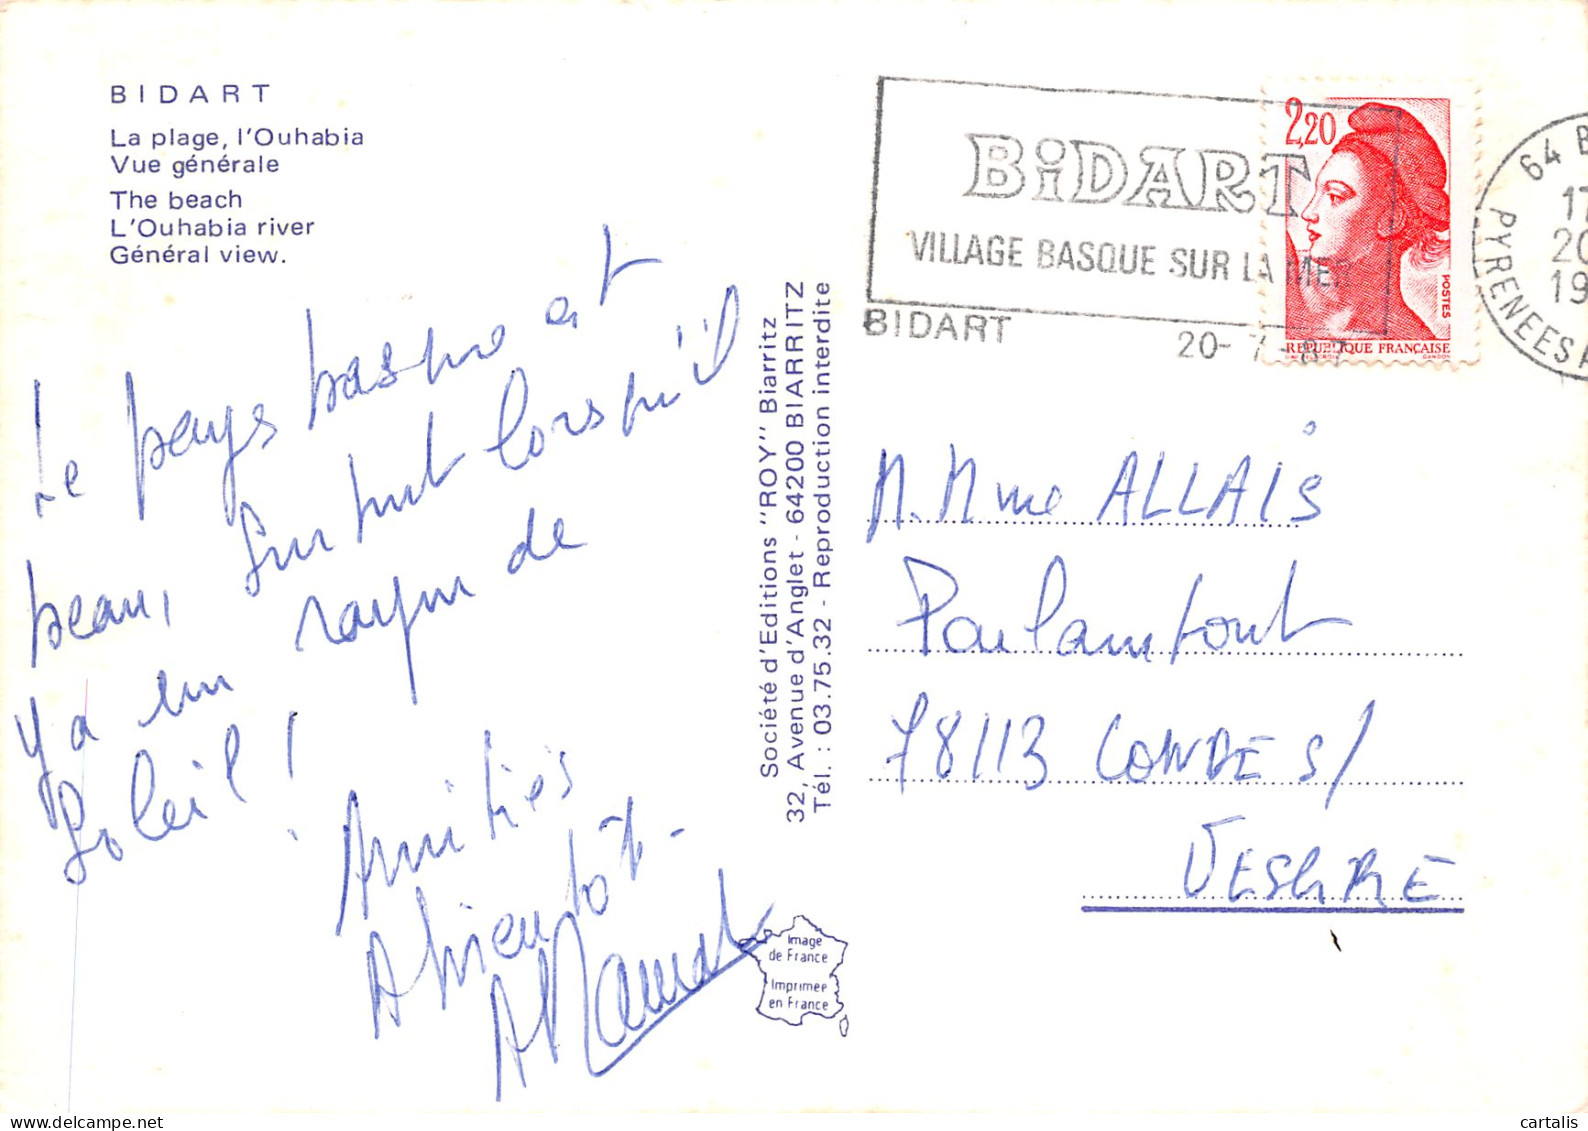 BIDART
La plage, l'Ouhabia
Vue générale
The beach
L'Ouhabia river
Général view.
Le pays basque est
beau, surtout lorsqu'il
y a un rayon de
Soleil !
Amitiés
A bientôt -
Société d'Editions "ROY" Biarritz
32, Avenue d'Anglet - 64200 BIARRITZ
Tél. : 03.75.32 - Reproduction interdite
Image
de France
Imprimée
en France
BiDART
VILLAGE BASQUE SUR LA MER
BIDART 20-7-87
2,20
POSTES
REPUBLIQUE FRANÇAISE
GANDON
64 B
17
20
19
PYRENEES A
M. Mme ALLAIS
78113 CONDE S/
VESGRE
delcampe.net
cartalis